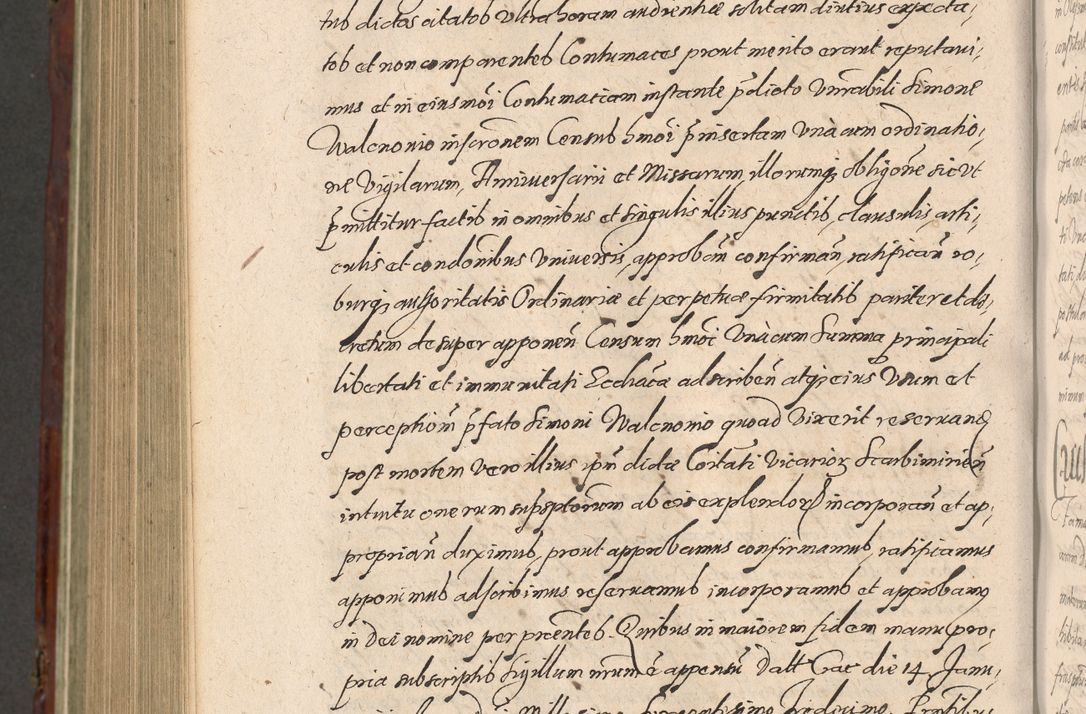 tus dictos citatos Ultra horam audientiæ solitam diutius expecta,
tos et non comparentes Contumaces prout merito erant reputavi,
mus et in eiusmoi Contumaciam instante pdicto Vnrabili Simone
Walcnonio inscronem Census hmoi pinsertam Unà cum ordinatio,
ne Vigilarum, Anniversarii et Missarum, illorumq obligone sicut
pmittitur factis in omnibus et singulis illius punctis, clausulis, arti,
culis et condonibus Universis, approban confirman, ratifican ro,
burq authoritatis Ordinariæ et perpetuæ firmitatis pariter et de,
cretum desuper apponen Censum hmoi Unàcum Summa principali
libertati et immunitati Ecclicæ adscriben atq eius Usum et
perceptiom pfato Simoni Walcnonio quoad Vixerit reservans
post mortem vero illius ipm dictæ Coitati Vicarior Scarbimirien
intuitu onerum supsptorum ab eis explendor incorporan et ap,
proprian duximus, prout approbamus confirmamus, ratificamus
apponimus adscribimus reservamus incorporamus et approbamus
in Dei nomine per prcentes. Quibus in maiorem fidem manu pro,
pria subscriptis Sigillum nrum e appensu Datt Crac die 14 Janu,
Millesimo Sexcentesimo Tredecimo. Pntibus